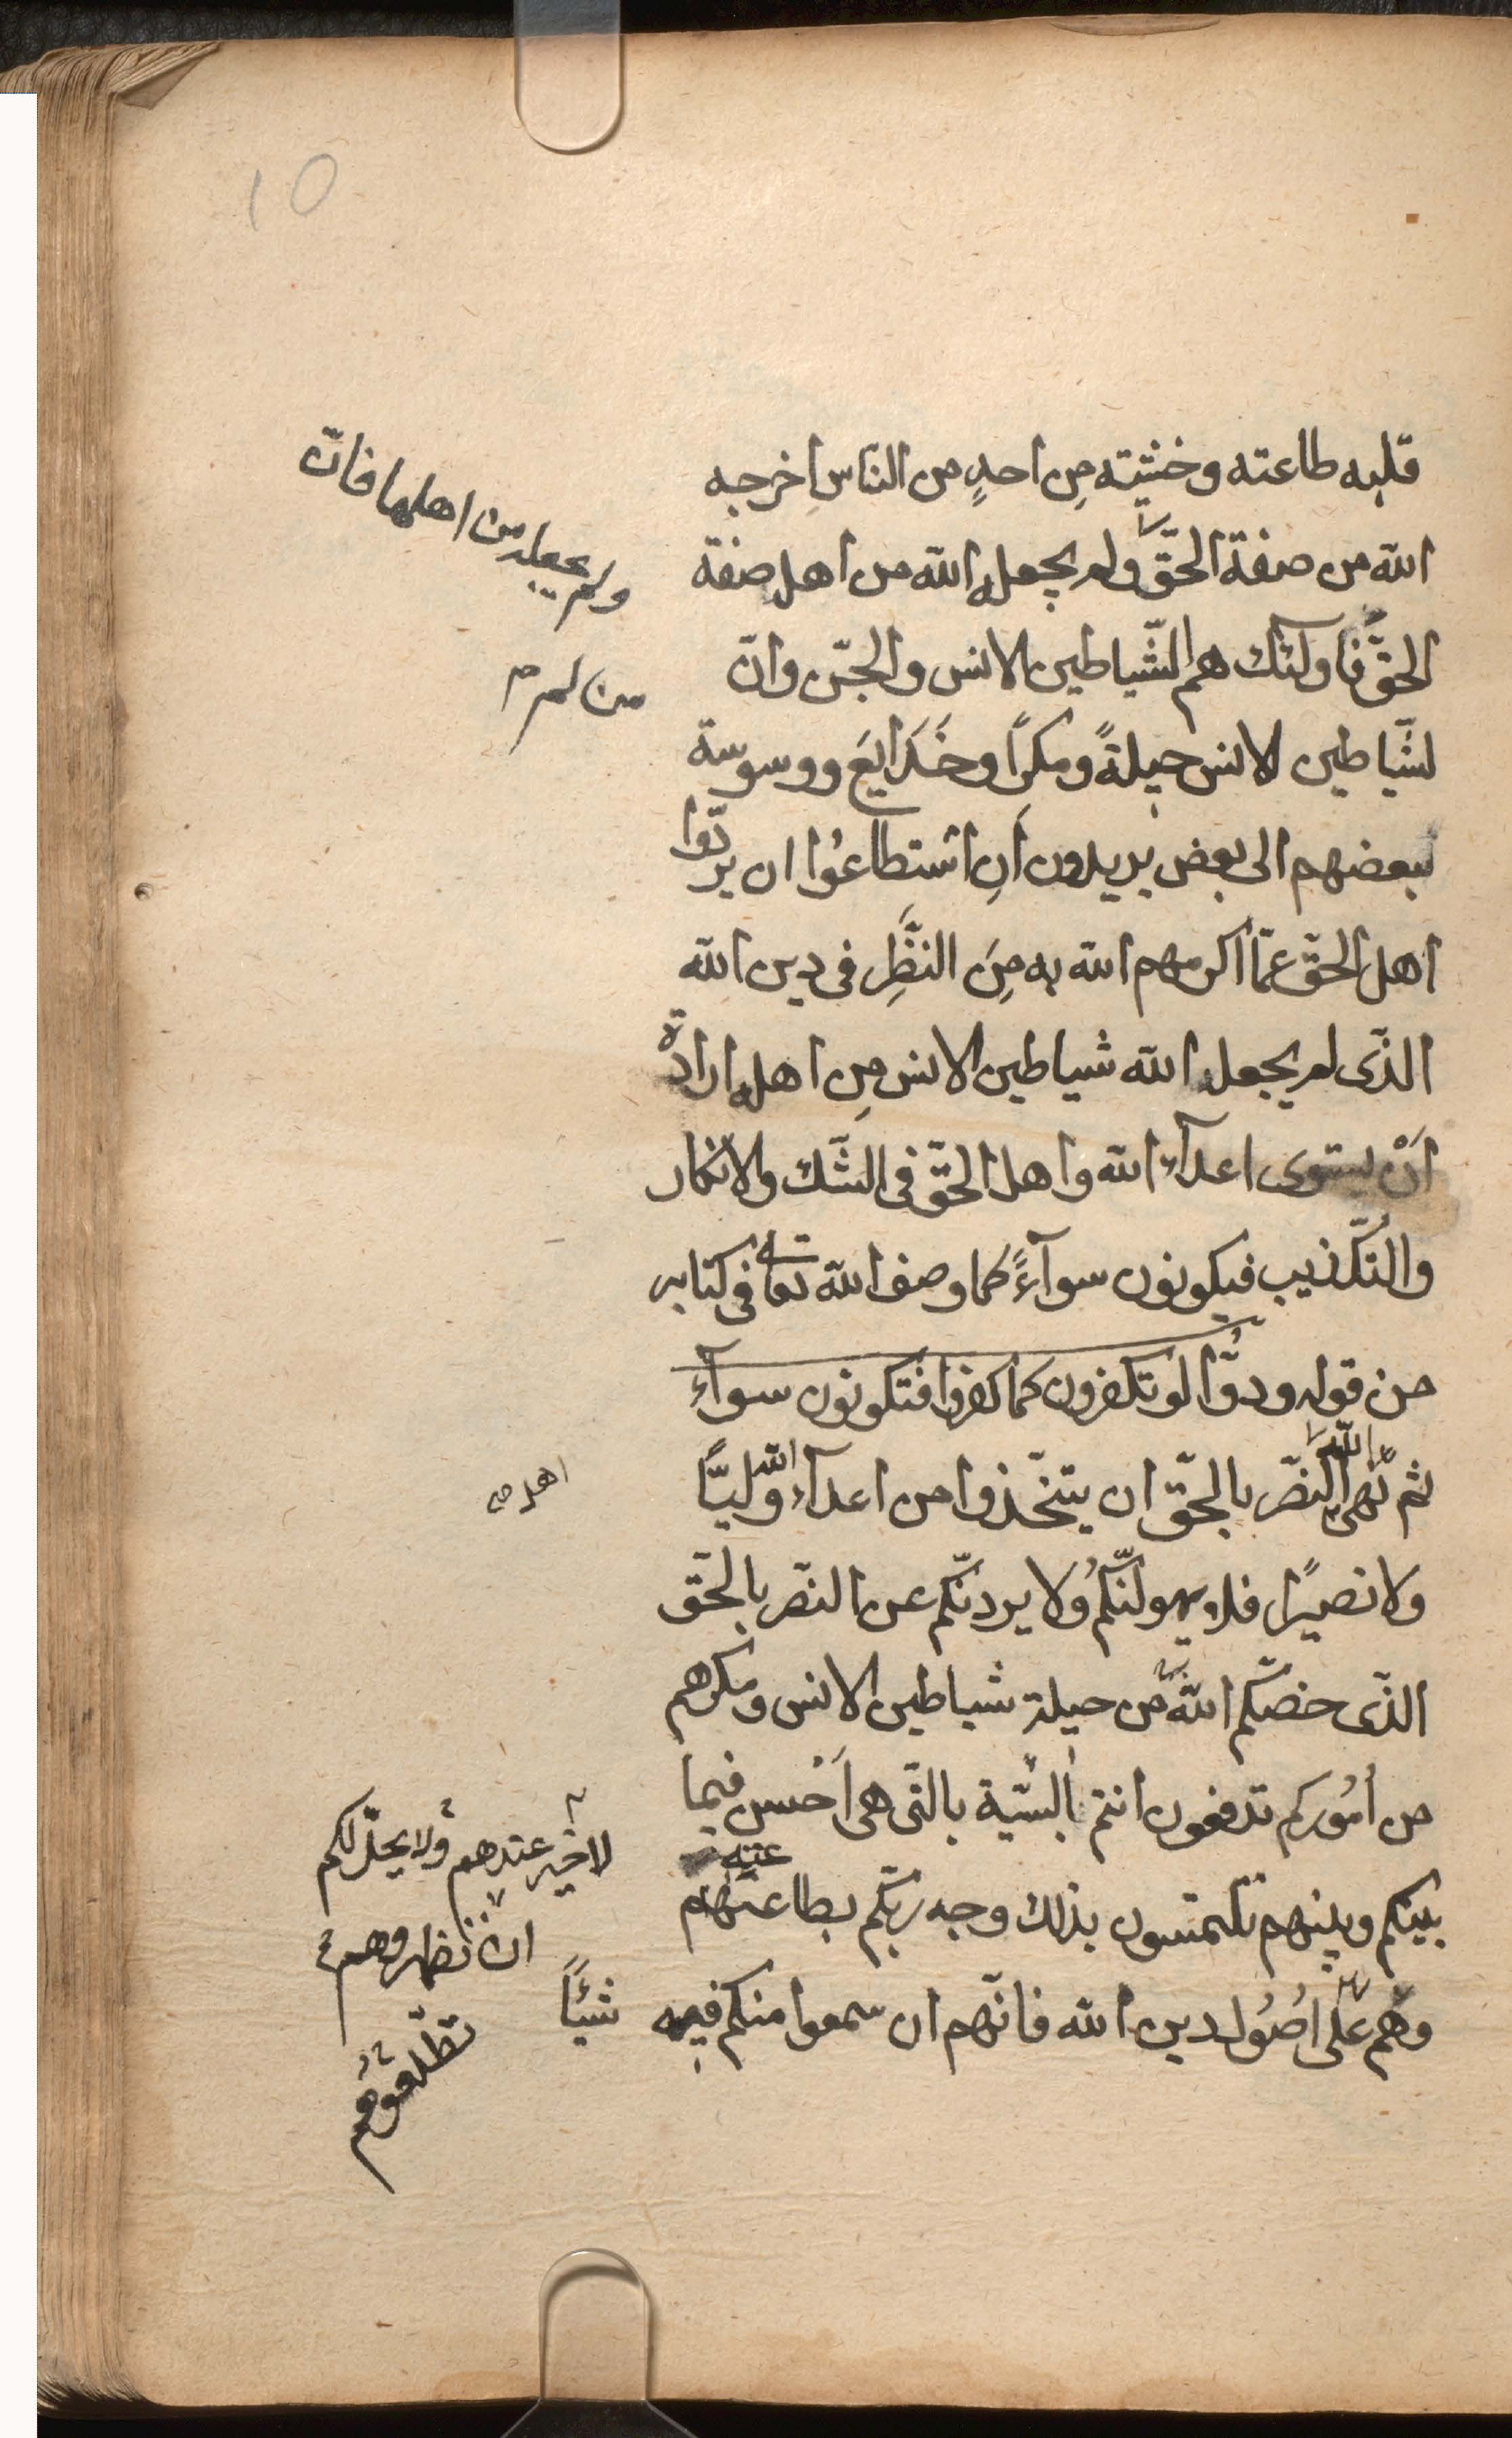 10
قلبه طاعته وخشيته مِن احدٍ من الناس اخرجه
الله من صفة الحقّ ولم يجعله الله من اهل صفة
الحقّ فاولئك هم الشّياطين الانس والجنّ وانّ
لشّياطين الانس حيلةً ومكرًا وخَدَايعَ ووسوسة
بعضهم الى بعض يريدون اَنِ اسْتطاعوُا ان يردّوا
اهل الحقّ عمّا اكرمهم الله به مِنَ النظَّرِ فى دين الله
الذّى لم يجعل الله شياطين الانس مِن اهله ارادة
اَنْ يستوى اعدآء الله واهل الحقّ فى الشّك والانكار
والتُكّذيب فيكونون سوآءً كما وصف الله تعالى فى كتابه
من قوله ودوُّا لو تكفرون كما كفروا فتكونون سوآءً
ثم نهى الله النصّر بالحقّ ان يتخّذوا من اعدآء الله وليًّا
ولا نصيرًا فلا يهولنّكُم ولا يردنّكم عن النصّر بالحقّ
الذّى خصّكم اللهُ من حيلة شياطين الانس ومكرهم
من اُموُركم تدفعون انتم السّيّة بالتّى هى اَحْسن فيما
بينكم وبينهم تلتمسون بذلك وجه ربّكم بطاعتهم
عته
وهُم على اُصُول دين الله فانّهم ان سمعوا منكم فيه شيئًا
ولم يجعله من اهلها فانّ
من لم
اهل
لا خير عندهم ولا يحلّ لكم
ان تظهروهم